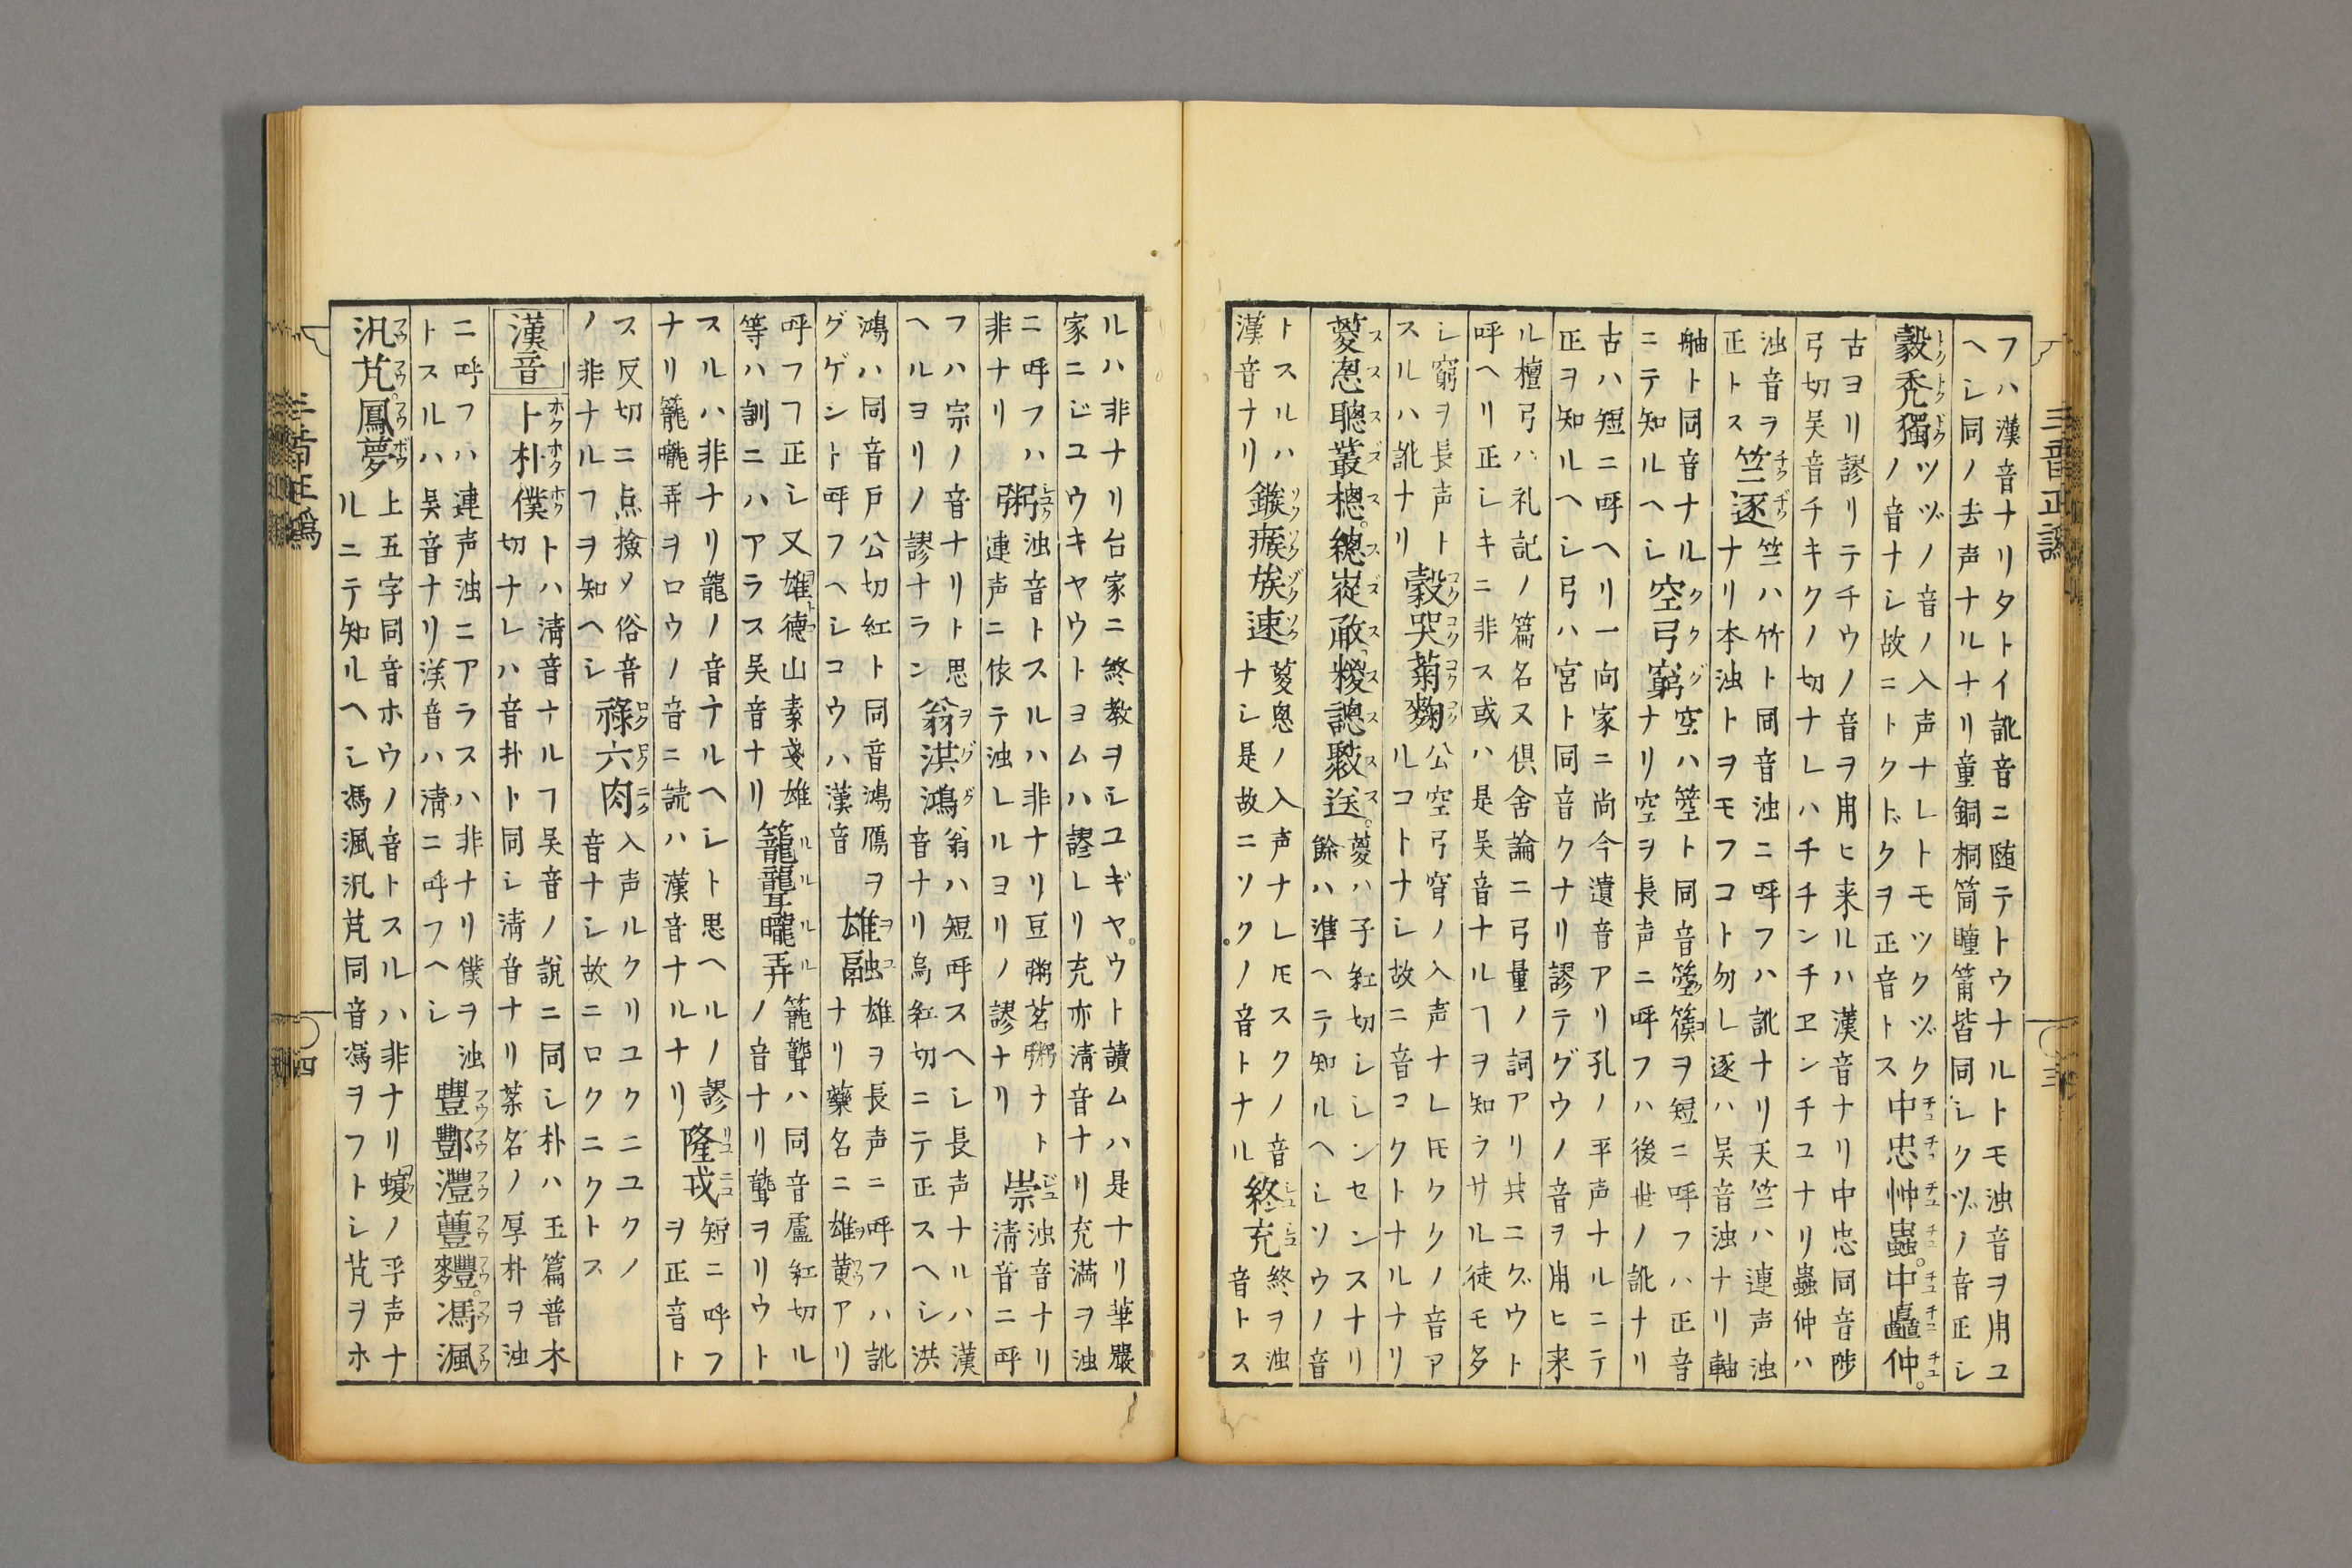 三音正譌
三
フハ漢音ナリタトイ訛音ニ随テトウナルトモ浊音ヲ用ユ
ヘシ同ノ去声ナルナリ童銅桐筒瞳筩皆同シクヅノ音正シ
穀禿獨
ツヅノ音ノ入声ナレトモツクヅク
ノ音ナシ故ニトクドクヲ正音トス
中忠忡蟲中矗仲
古ヨリ謬リテチウノ音ヲ用ヒ来ルハ漢音ナリ中忠同音陟
弓切吴音チキクノ切ナレハチチンチヱンチユナリ蟲仲ハ
浊音ヲ
正トス
竺逐
竺ハ竹ト同音浊ニ呼フハ訛ナリ天竺ハ連声浊
ナリ本浊トヲモフコト勿レ逐ハ吴音浊ナリ軸
舳ト同音ナル
ニテ知ルヘシ
空弓窮
空ハ箜ト同音箜篌ヲ短ニ呼フハ正音
ナリ空ヲ長声ニ呼フハ後世ノ訛ナリ
古ハ短ニ呼ヘリ一向家ニ尚今遺音アリ孔ノ平声ナルニテ
正ヲ知ルヘシ弓ハ宮ト同音クナリ謬テグウノ音ヲ用ヒ来
ル檀弓ハ礼記ノ篇名又倶舍論ニ弓量ノ詞アリ共ニグウト
呼ヘリ正シキニ非ス或ハ是吴音ナルヿヲ知ラサル徒モ多
シ窮ヲ長声ト
スルハ訛ナリ
穀哭菊麴
公空弓穹ノ入声ナレ𪜈ククノ音ア
ルコトナシ故ニ音コクトナルナリ
葼怱聰叢楤總嵏㪇糉謥藂送
葼ハ子紅切シシンセンスナリ
餘ハ準ヘテ知ルヘシソウノ音
トスルハ
漢音ナリ
鏃瘯族速
葼怱ノ入声ナレ𪜈スクノ音
ナシ是故ニソクノ音トナル
終充
終ヲ浊
音トス
ルハ非ナリ台家ニ終教ヲシユギヤウト讀ムハ是ナリ華嚴
家ニジユウキヤウトヨムハ謬レリ充亦淸音ナリ充満ヲ浊
ニ呼フハ
非ナリ
粥
浊音トスルハ非ナリ豆粥茗粥ナト
連声ニ依テ浊レルヨリノ謬ナリ
崇
浊音ナリ
淸音ニ呼
フハ宗ノ音ナリト思
ヘルヨリノ謬ナラン
翁洪鴻
翁ハ短呼スヘシ長声ナルハ漢
音ナリ烏紅切ニテ正スヘシ洪
鴻ハ同音戸公切紅ト同音鴻鴈ヲ
グゲント呼フヘシコウハ漢音
雄融
雄ヲ長声ニ呼フハ訛
ナリ藥名ニ雄黄アリ
呼フヿ正シ又雄德山素戔雄
等ハ訓ニハアラス吴音ナリ
籠聾曨弄
籠聾ハ同音盧紅切ル
ノ音ナリ聾ヲリウト
スルハ非ナリ龍ノ音ナルヘシト思ヘルノ謬
ナリ籠曨弄ヲロウノ音ニ読ハ漢音ナルナリ
隆戎
短ニ呼フ
ヲ正音ト
ス反切ニ点撿〆俗音
ノ非ナルヿヲ知ヘシ
祿六肉
入声ルクリユクニユクノ
音ナシ故ニロクニクトス
漢音
卜朴僕
卜ハ淸音ナルヿ吴音ノ說ニ同シ朴ハ玉篇普木
切ナレハ音扑ト同シ淸音ナリ菜名ノ厚朴ヲ浊
ニ呼フハ連声浊ニアラスハ非ナリ僕ヲ浊
トスルハ吴音ナリ漢音ハ淸ニ呼フヘシ
豐酆灃蘴麷馮渢
汎芃鳳夢
上五字同音ホウノ音トスルハ非ナリ𧐊ノ平声ナ
ルニテ知ルヘシ馮渢汎芃同音馮ヲフトシ芃ヲホ
三音正譌
四